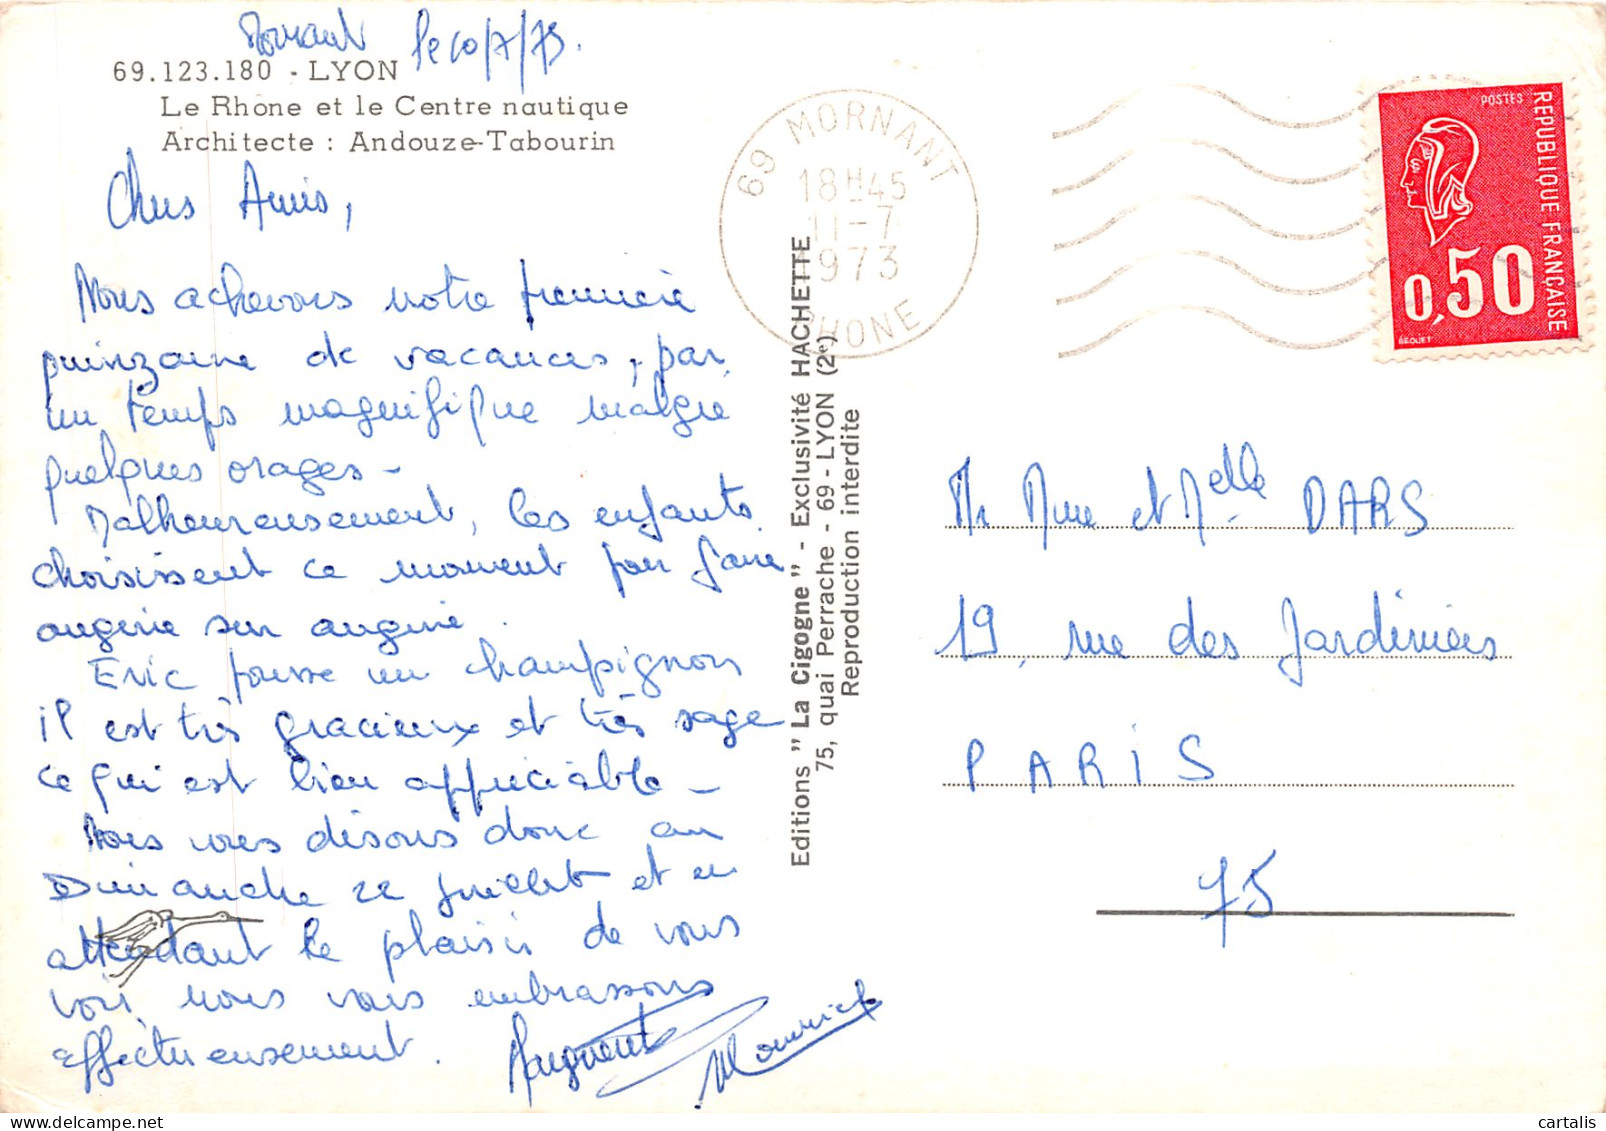 Mornant le 10/7/73.
69.123.180 - LYON
Le Rhône et le Centre nautique
Architecte : Andouze-Tabourin
Chers Amis,
Nous achevons notre première
quinzaine de vacances, par
un temps magnifique malgré
quelques orages -
Malheureusement, les enfants
choisissent ce moment pour faire
angine sur angine.
Eric pousse un champignon
il est très gracieux et très sage
ce qui est bien appréciable -
Nous vous disons donc au
Dimanche 22 juillet et en
attendant le plaisir de vous
voir, nous vous embrassons
affectueusement.
69 MORNANT
18H45
11-7
1973
RHONE
Editions "La Cigogne" - Exclusivité HACHETTE
75, quai Perrache - 69 - LYON (2e)
Reproduction interdite
POSTES
REPUBLIQUE FRANÇAISE
0,50
BEQUET
Mr Mme et Melle DARS
19, rue des Jardiniers
PARIS
75
cartalis